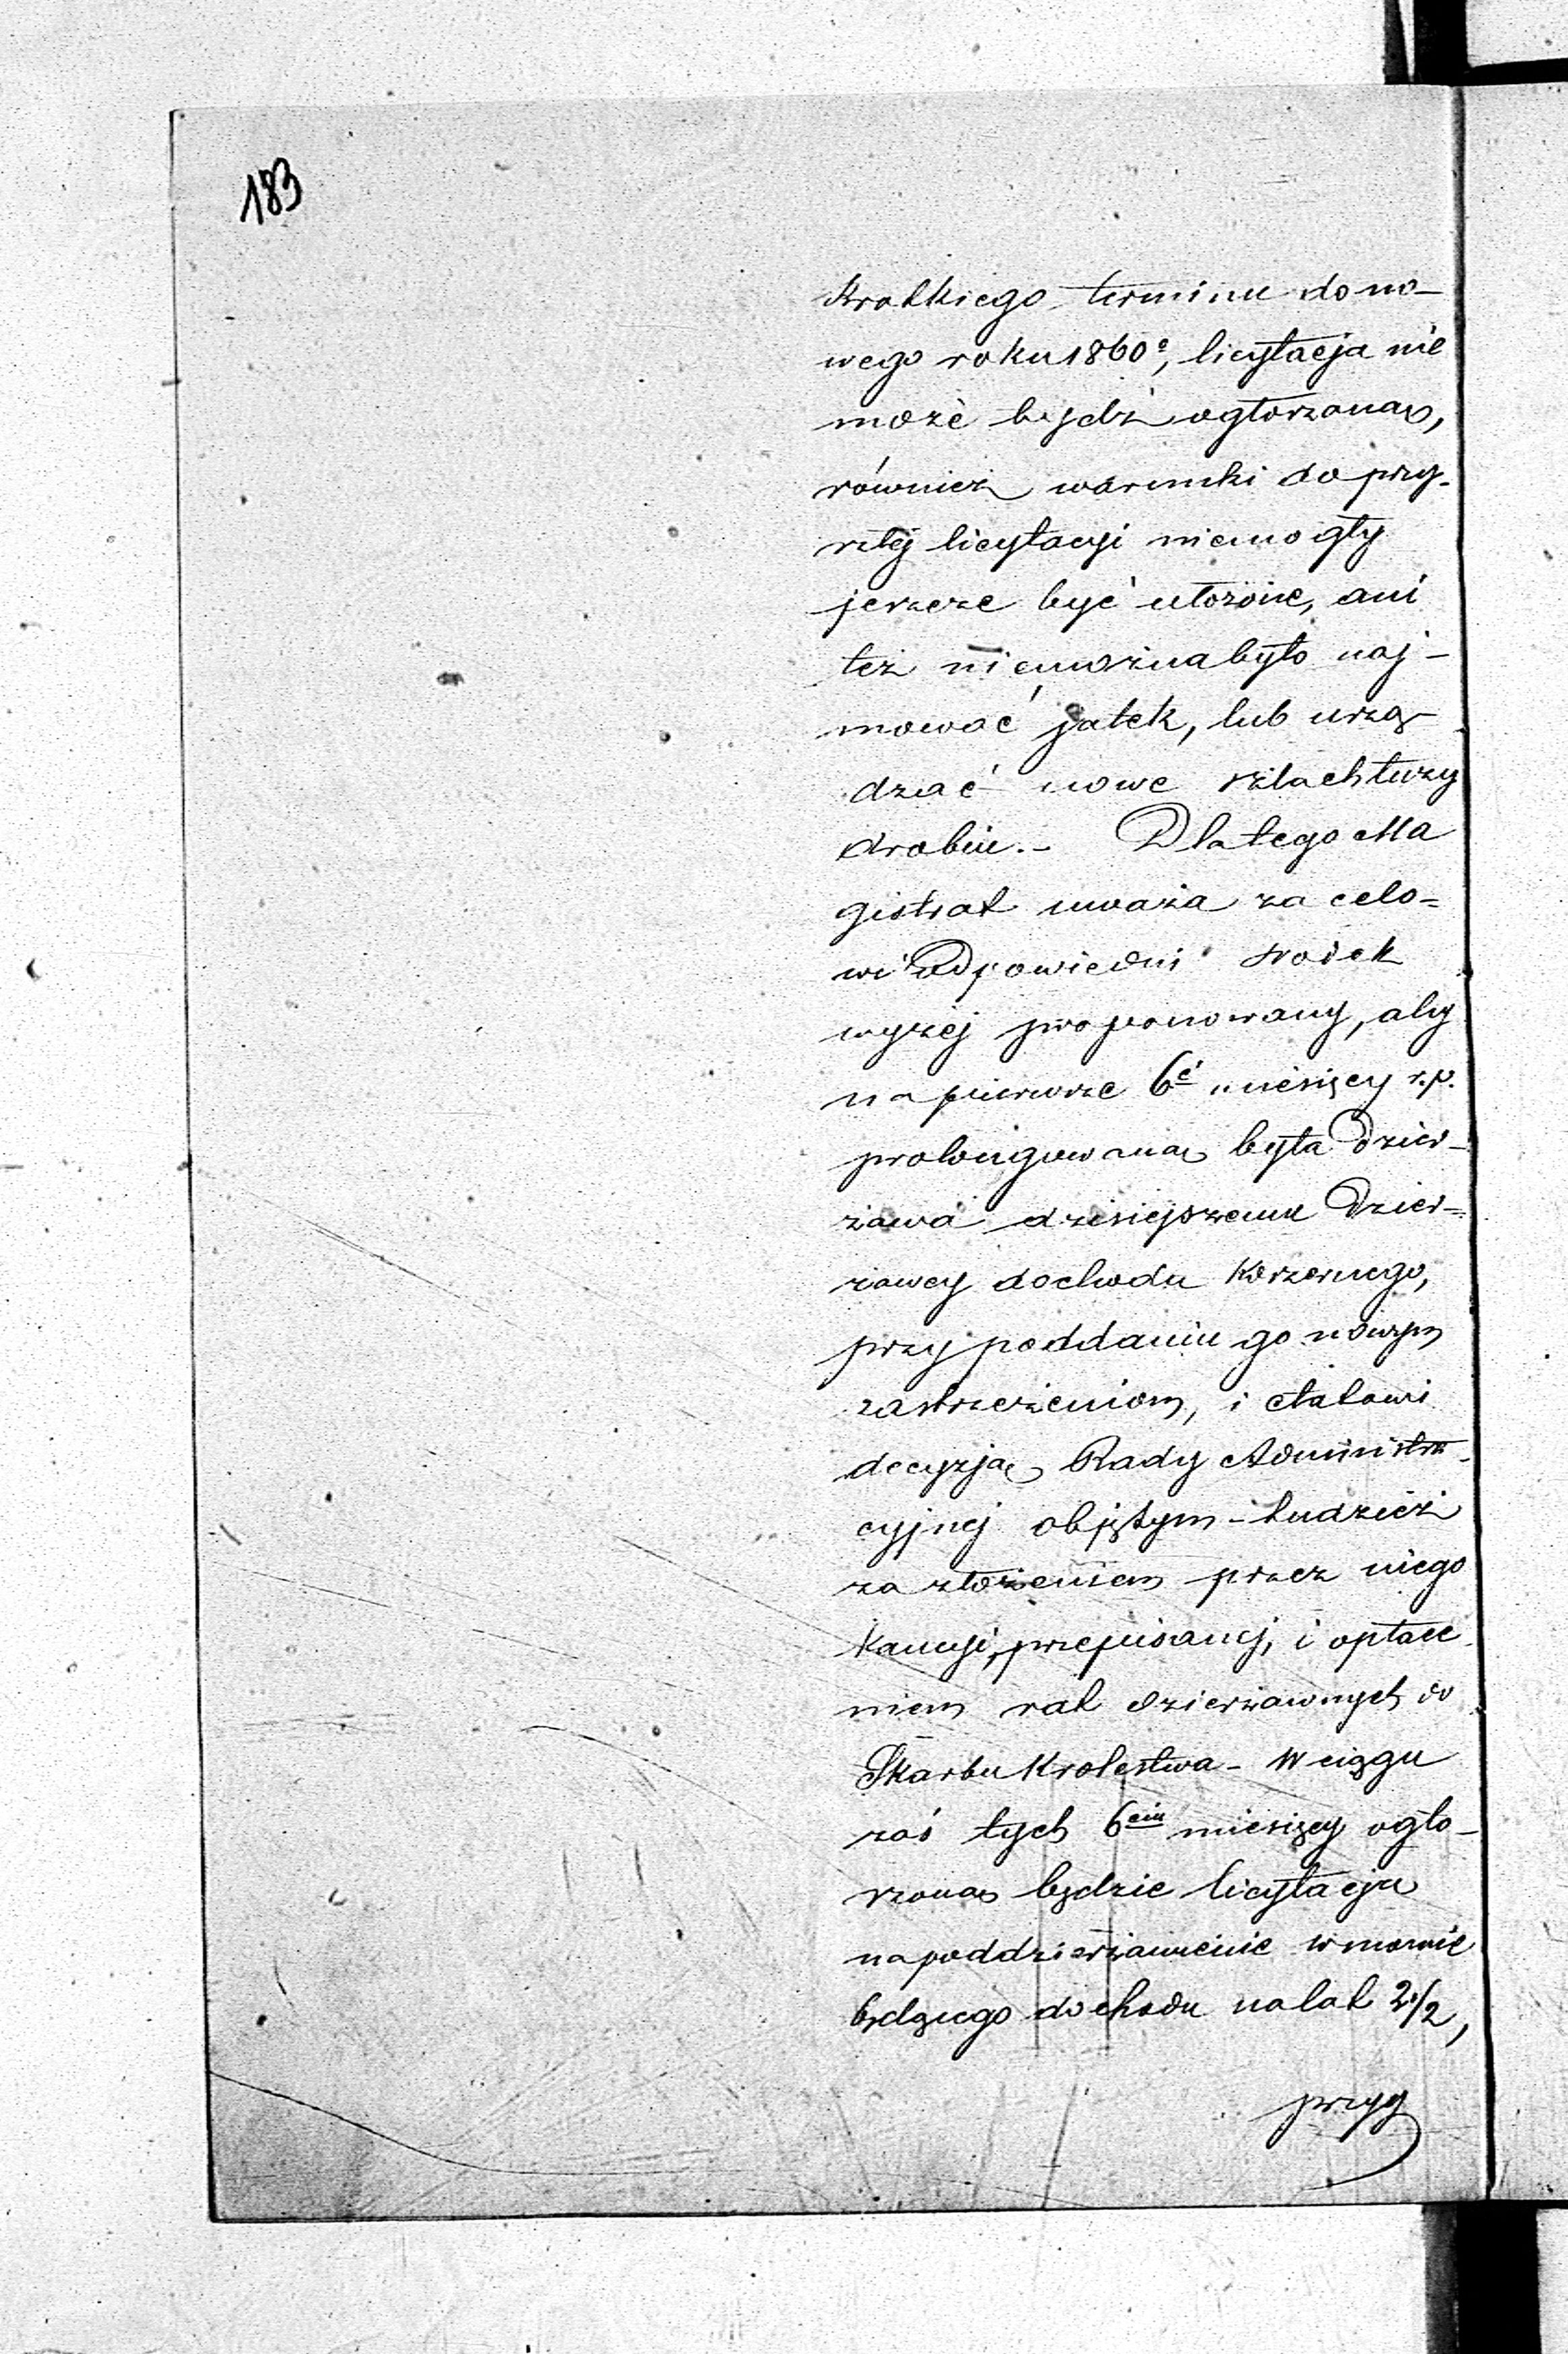 183
krotkiego terminu do no-
wego roku 1860º, licytacja nie
może bydź ogłoszoną,
również warunki do przy-
szłej licytacyi niemogły
jeszcze być ułożone, ani
też niemożna było naj-
mować jatek, lub urzą-
dzać nowe szlachtuzy
drobiu. - Dlatego Ma
gistrat uważa za celo=
wi odpowiedni środek
wyżej proponowany, aby
na pierwsze 6ć miesięcy r.p.
prolongowaną była Dzier-
żawa dzisiejszemu Dzier=
żawcy dochodu Koszernego,
przy poddaniu go nowym
zastrzeżeniom, i etatowi
decyzją Rady Administra-
cyjnej objętym - tudzież
za złożeniem przez niego
kaucyi, przepisanej, i opłace
niem rat dzierżawnych do
Skarbu Krolestwa - W ciągu
zaś tych 6ciu miesięcy ogło-
szoną będzie licytacja
na poddzierżawienie w mowie
będącego dochodu na lat 2 1/2,
przy